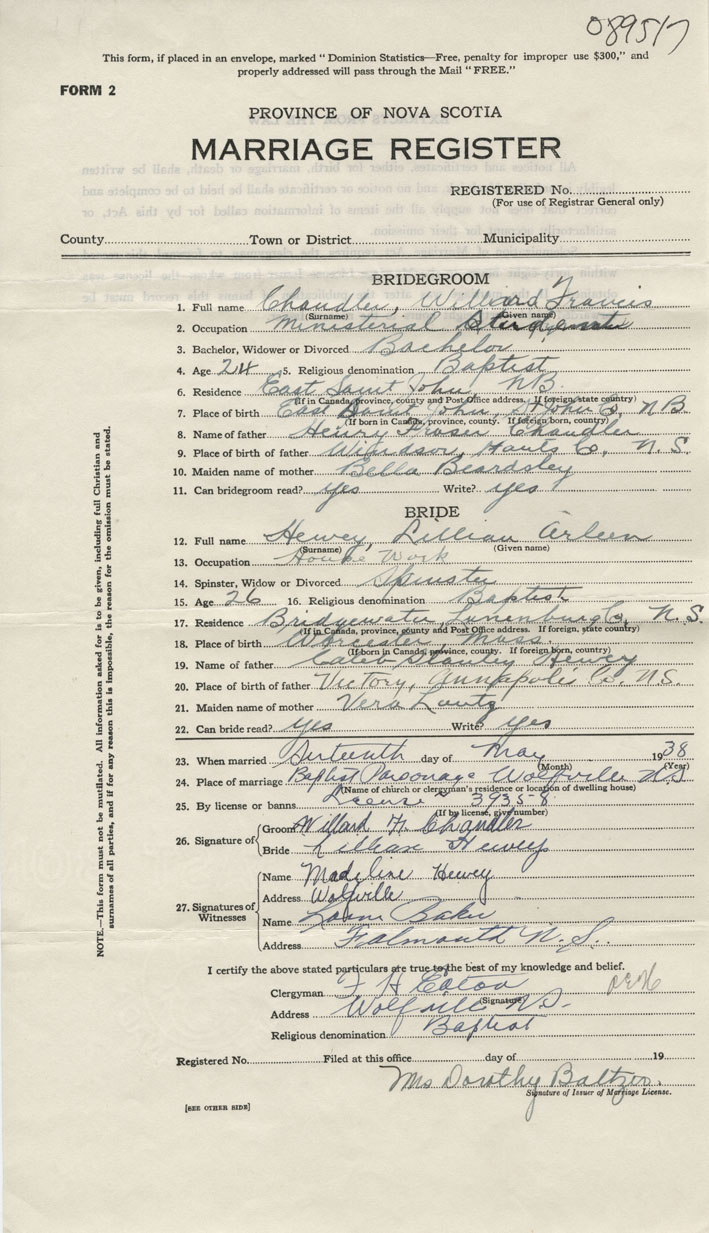 089517
This form, if placed in an envelope, marked "Dominion Statistics—Free, penalty for improper use $300," and
properly addressed will pass through the Mail "FREE."
FORM 2
PROVINCE OF NOVA SCOTIA
MARRIAGE REGISTER
REGISTERED No.
(For use of Registrar General only)
County Town or District Municipality
BRIDEGROOM
1. Full name Chandler, Willard Francis
(Surname) (Given name)
2. Occupation Ministerial Student
3. Bachelor, Widower or Divorced Bachelor
4. Age 24 5. Religious denomination Baptist
6. Residence East Saint John, N.B.
(If in Canada, province, county and Post Office address. If foreign, state country)
7. Place of birth East Saint John, St John Co, N B
(If born in Canada, province, county. If foreign born, country)
8. Name of father Henry Fraser Chandler
9. Place of birth of father Windsor, Hants Co, N. S.
10. Maiden name of mother Bella Beardsley
11. Can bridegroom read? yes Write? yes
BRIDE
12. Full name Hewey, Lillian Arleen
(Surname) (Given name)
13. Occupation House Work
14. Spinster, Widow or Divorced Spinster
15. Age 26 16. Religious denomination Baptist
17. Residence Bridgewater, Lunenburg Co, N. S.
(If in Canada, province, county and Post Office address. If foreign, state country)
18. Place of birth Worcester, Mass.
(If born in Canada, province, county. If foreign born, country)
19. Name of father Caleb Stanley Hewey
20. Place of father Victory, Annapolis Co. N.S.
21. Maiden name of mother Vera Lantz
22. Can bride read? yes Write? yes
23. When married Sixteenth day of May 1938
(Month) (Year)
24. Place of marriage Baptist Parsonage Wolfville N.S
(Name of church or clergyman's residence or location of dwelling house)
25. By license or banns License 39358
(If by license, give number)
26. Signature of Groom Willard F. Chandler
Bride Lillian Hewey
27. Signatures of Witnesses
Name Madeline Hewey
Address Wolfville
Name Baker
Address Falmouth N.S.
I certify the above stated particulars are true to the best of my knowledge and belief.
Clergyman F H Eaton
(Signature)
Address Wolfville N.S.
Religious denomination Baptist
Registered No. Filed at this office day of 19
Mrs Dorothy Baltzer.
Signature of Issuer of Marriage License.
[SEE OTHER SIDE]
NOTE.—This form must not be mutilated. All information asked for is to be given, including full Christian and
surnames of all parties, and if for any reason this is impossible, the reason for the omission must be stated.